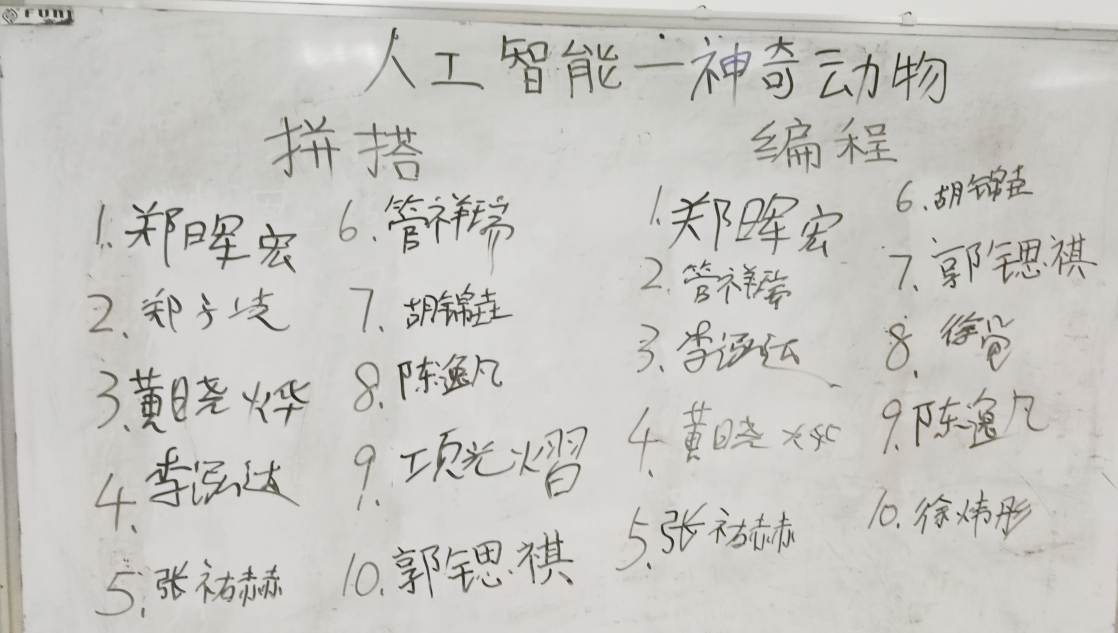 FUNJ
人工智能—神奇动物
拼搭
编程
1. 郑晖宏
2. 郑
3. 黄晓烨
4. 李泓达
5. 张祐赫
6. 管祥瑞
7. 胡锦
8. 陈逸凡
9. 项光熠
10. 郭锶祺
1. 郑晖宏
2. 管祥瑞
3. 李泓达
4. 黄晓烨
5. 张祐赫
6. 胡锦
7. 郭锶祺
8. 徐
9. 陈逸凡
10. 徐炜彤